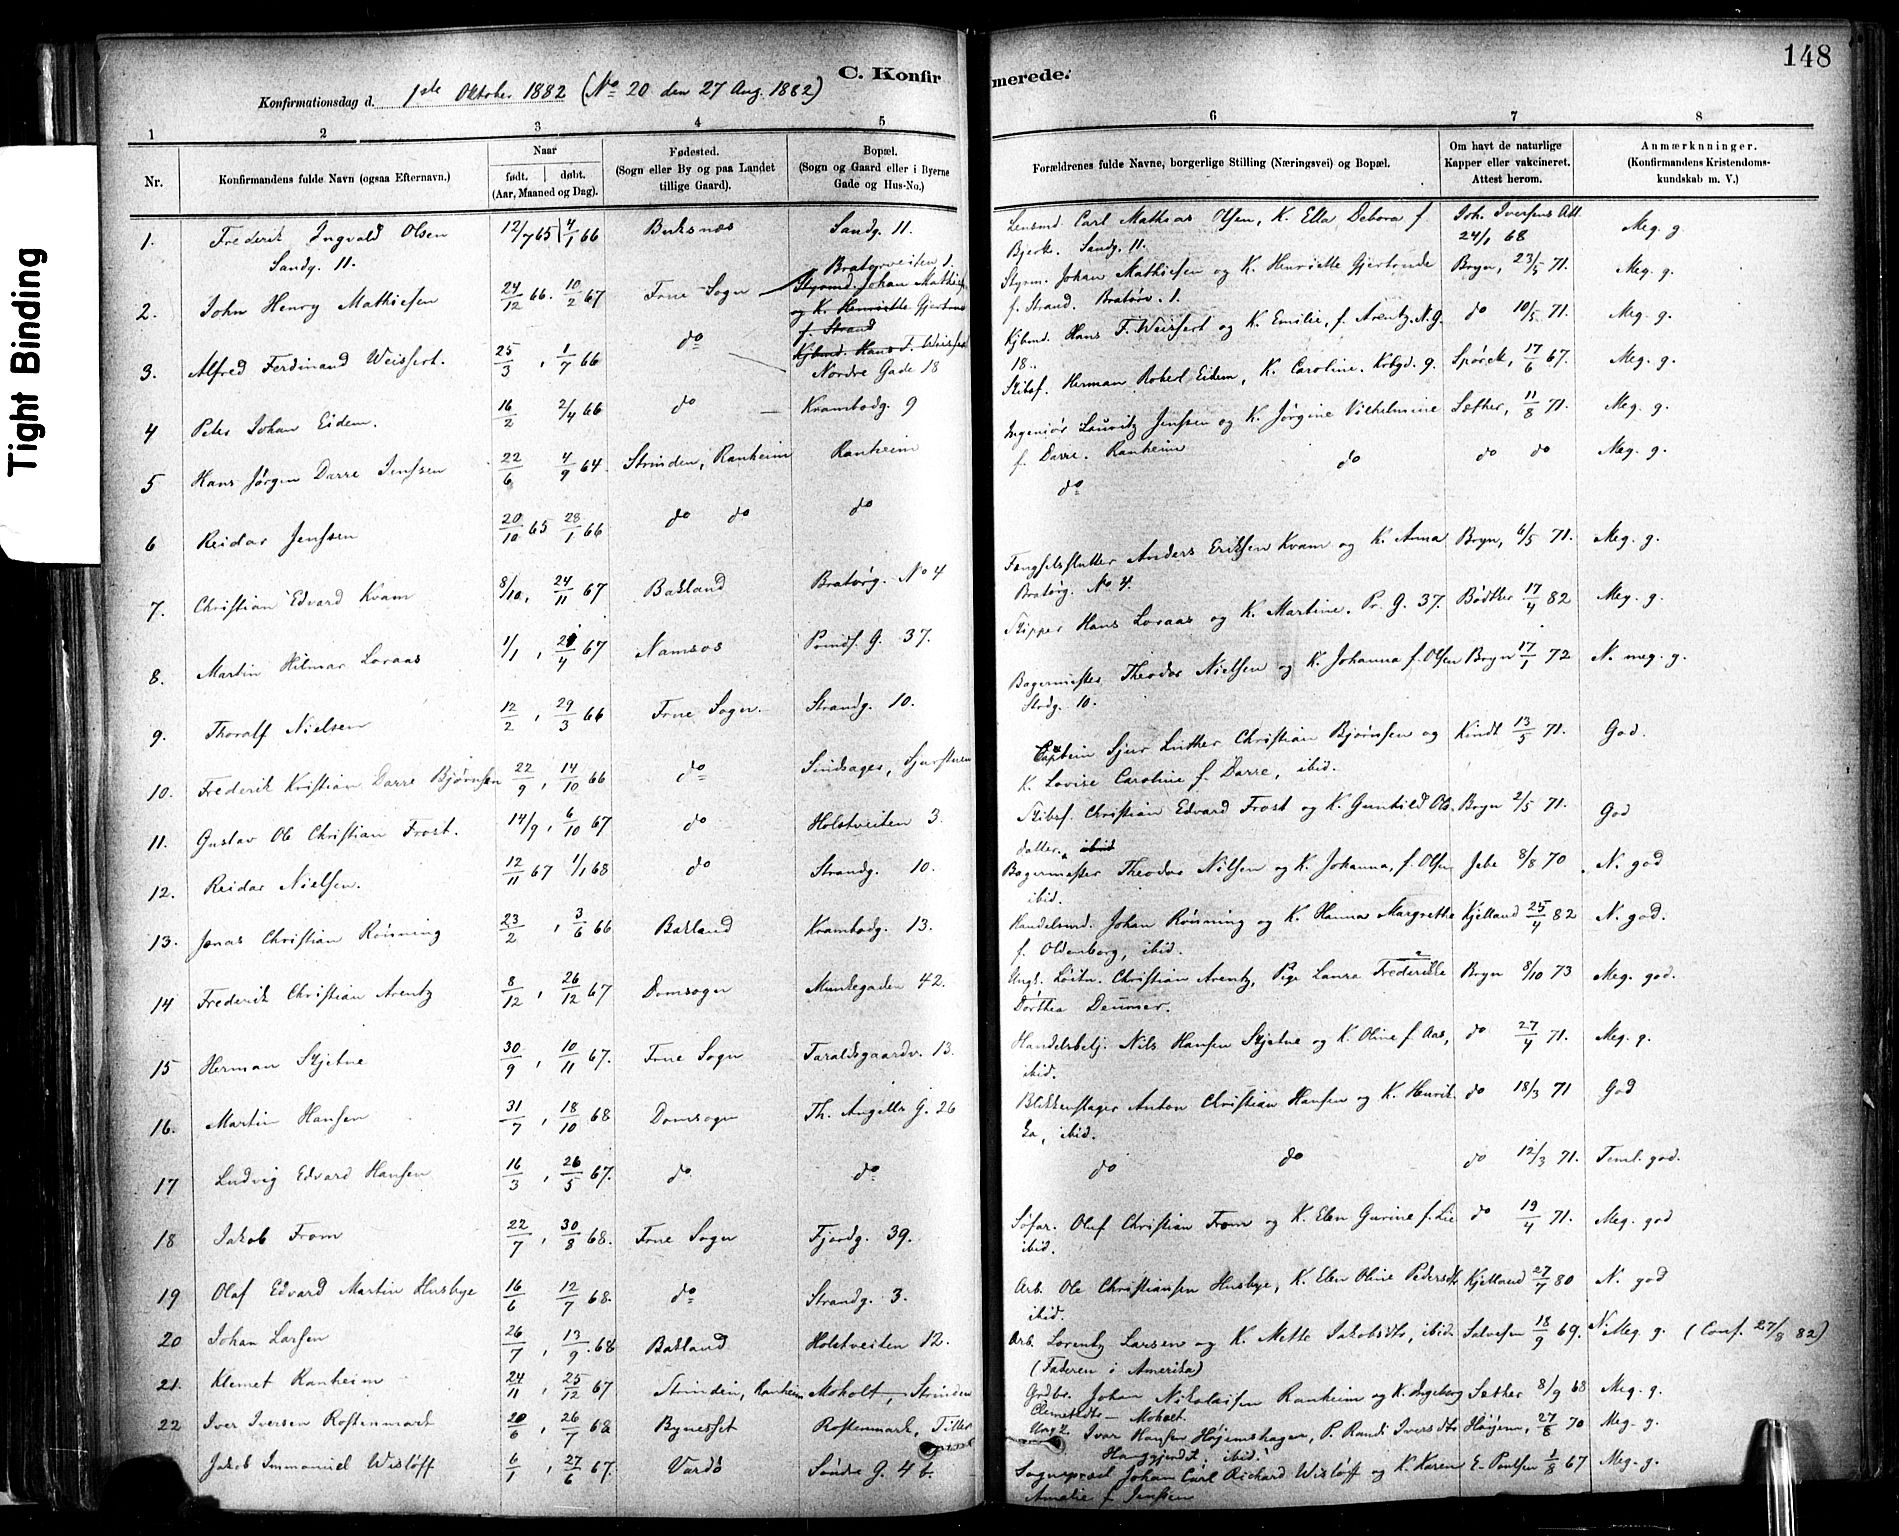 148
Tight Binding
C. Konfirmerede.
Konfirmationsdag d. 1ste Oktober 1882 (No 20 den 27 Aug. 1882)
1 2 3 4 5 6 7 8
Nr. Konfirmandens fulde Navn (ogsaa Efternavn). Naar født. døbt. (Aar, Maaned og Dag). Fødested. (Sogn eller By og paa Landet tillige Gaard). Bopæl. (Sogn og Gaard eller i Byerne Gade og Hus-No.) Forældrenes fulde Navne, borgerlige Stilling (Næringsvei) og Bopæl. Om havt de naturlige Kapper eller vakcineret. Attest herom. Anmærknninger. (Konfirmandens Kristendomskundskab m. V.)
1. Frederik Ingvald Olsen 12/7 65 4/1 66 Buksnæs Sandg. 11. Lensmd. Carl Mathias Olsen, K. Ella Debora f. Joh. Iversens Att. 24/1 68 Meg. g.
Sandg. 11. Bjerk. Sandg. 11.
2. John Henry Mathiesen 24/12 66. 10/2 67 Frue Sogn Bratørveiten 1. Styrmd. Johan Mathies og K. Henriette Gjertrude f. Strand Styrm. Johan Mathiesen og K. Henriette Gjertrude Bryn, 23/5 71. Meg. g.
f. Strand. Bratørv. 1.
3. Alfred Ferdinand Weissert. 25/3 , 1/7 66 do Kjbmd. Hans F. Weissert Nordre Gade 18 Kjbmd. Hans F. Weissert og K. Emilie, f. Arentz. N. G. do 10/5 71. Meg. g.
18.
4 Peter Johan Eidem. 16/2 2/4 66 do Krambodg. 9 Skibsf. Herman Robert Eidem, K. Caroline. Krbgd. 9. Spørck, 17/6 67. Meg. g.
5 Hans Jørgen Darre Jenssen 22/6 4/9 64. Strinden, Ranheim Ranheim Ingeniør Lauritz Jenssen og K. Jørgine Vilhelmine Sæther, 11/8 71. Meg. g.
f. Darre. Ranheim
6 Reidar Jenssen 20/10 65 28/1 66 do do do do do do do Meg. g.
7. Christian Edvard Kvam 8/10, 24/11 67 Bakland Bratørg. No 4 Fængselsslutter Anders Eriksen Kvam og K. Anna Bryn, 6/5 71. Meg. g.
Bratørg. No 4.
8. Martin Hilmar Loraas 1/1 , 21/4 67 Namsos Prinds. G. 37. Skipper Hans Loraas og K. Martine. Pr. G. 37. Bødtker 17/4 82 Meg. g.
9. Thoralf Nielsen 12/2 , 29/3 66 Frue Sogn. Strandg. 10. Bagermester Theodor Nielsen og K. Johanna f. Olsen Bryn 17/1 72 N. meg. g.
Strdg. 10.
10. Frederik Kristian Darre Bjørnsen 22/9 , 14/10 66 do Captein Sjur Luther Christian Bjørnsen og Kindt 13/5 71. God.
K. Lovise Caroline f. Darre, ibid.
11. Gustav Ole Christian Frost. 14/9 , 6/10 67 do Holstveiten 3. Skibsf. Christian Edvard Frost og K. Gunhild Ols- Bryn 2/5 71. God
datter, ibid
12. Reidar Nielsen. 12/11 67 1/1 68 do Strandg. 10. Bagermester Theodor Nilsen og K. Johanna, f. Olsen Jebe 8/8 70 N. god
ibid.
13. Jonas Christian Rönning 23/2 , 3/6 66 Bakland Krambodg. 13. Handelsmd. Johan Rönning og K. Hanna Margrethe Kjelland 25/4 82 N. god.
f. Oldenborg, ibid.
14 Frederik Christian Arentz 8/12 , 26/12 67 Domsogn Munkegaden 42. Ungk. Löitn. Christian Arentz, Pige Laura Frederikke Bryn 8/10 73 Meg. god.
Dorthea Deumer.
15 Herman Skjetne 30/9 , 10/11 67. Frue Sogn Taraldsgaardv. 13. Handelsbetj. Nils Hansen Skjetne og K. Oline f. Aas, do 27/4 71. Meg. g.
ibid.
16. Martin Hansen 31/7 , 18/10 68 Domsogn Th. Angells G. 26 Blikkenslager Anton Christian Hansen og K. Henrik- do 18/3 71 God
ka, ibid.
17 Ludvig Edvard Hansen 16/3 , 26/5 67. do do do do do 12/3 71. Teml. god.
18 Jakob From 22/7 , 30/8 68. Frue Sogn Fjordg. 39. Söfar. Oluf Christian From og K. Elen Gurine f. Lie do 19/4 71. Meg. god
ibid.
19 Olaf Edvard Martin Husbye 16/6 12/7 68. do Strandg. 3. Arb. Ole Christiansen Husbye, K. Elen Oline Pedersdtr. Kjelland 27/7 80 N. god
ibid.
20 Johan Larsen 26/7 , 13/9 68 Bakland Holstveiten 12. Arb. Lorentz Larsen og K. Mette Jakobsdtr, ibid. Salvesen 18/9 69. N. Meg. g. (Conf. 27/8 82)
(Faderen i Amerika)
21. Klemet Ranheim 24/11 , 25/12 67 Strinden, Ranheim Moholt, Strinden Grdbr. Johan Nikolaisen Ranheim og K. Ingeborg Sæther 8/9 68 Meg. g.
Clemetsdtr - Moholt.
22 Iver Iversen Rostenmark 20/6 , 26/7 68 Bynesset Rostenmark, Tiller Ungk. Ivar Hansen Högemshagen, P. Randi Iversdtr Högem, 27/8 70 Meg. g.
ibid.
Jakob Immanuel Wisløff 6/1 , 27/6 67. Vardö Søndre G. 4 b. Sogneprest Johan Carl Richard Wisløff og K. Karen E. Poulsen 1/8 67 Meg. g.
Amalie f. Jenssen